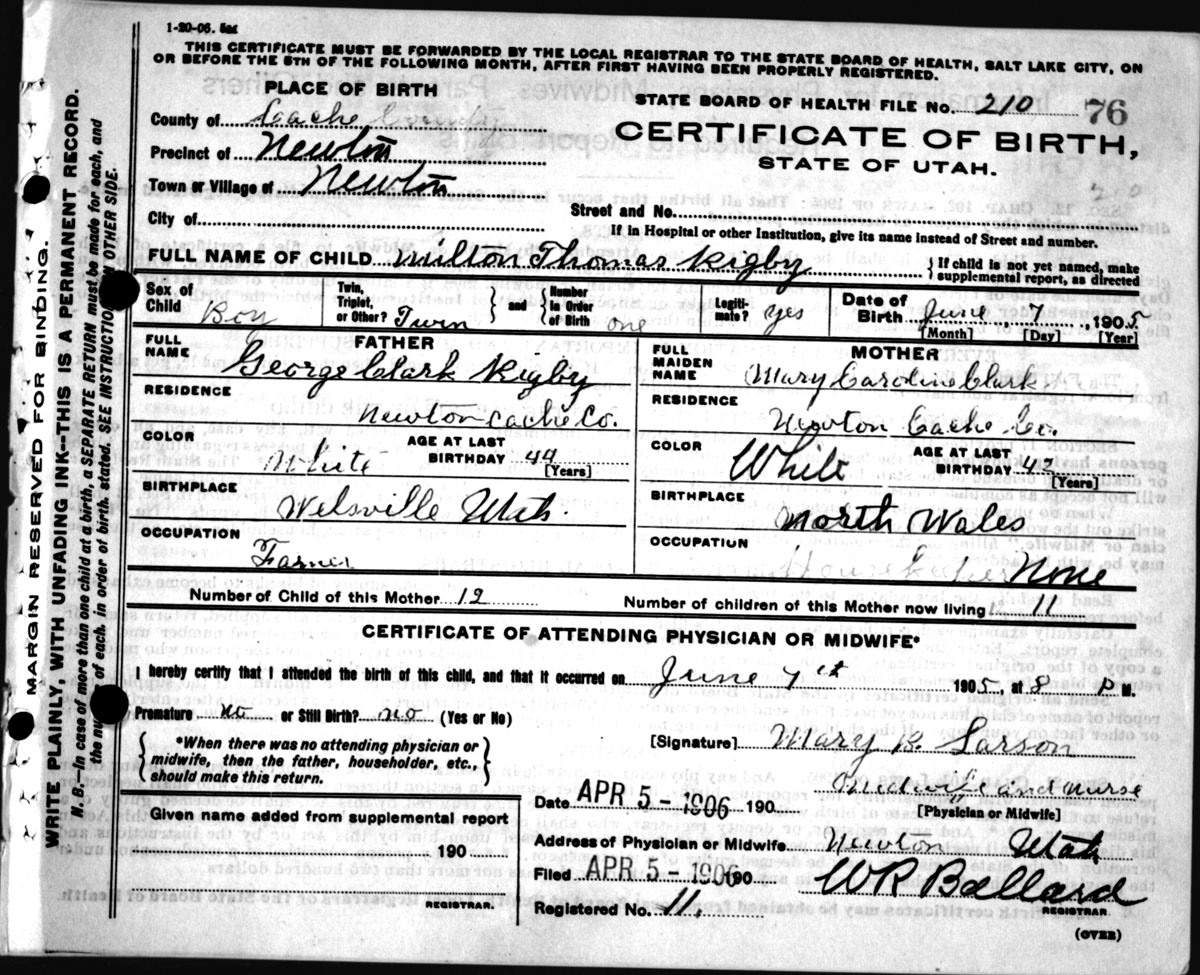 1-20-06. 5m
THIS CERTIFICATE MUST BE FORWARDED BY THE LOCAL REGISTRAR TO THE STATE BOARD OF HEALTH, SALT LAKE CITY, ON
OR BEFORE THE 5TH OF THE FOLLOWING MONTH, AFTER FIRST HAVING BEEN PROPERLY REGISTERED.
PLACE OF BIRTH
STATE BOARD OF HEALTH FILE No. 210 76
County of Cache County
CERTIFICATE OF BIRTH,
STATE OF UTAH.
Precinct of Newton
Town or Village of Newton
City of
Street and No.
If in Hospital or other Institution, give its name instead of Street and number.
FULL NAME OF CHILD Milton Thomas Rigby { If child is not yet named, make supplemental report, as directed
Sex of Child Boy Twin, Triplet, or Other? Twin and { Number in Order of Birth one Legiti-mate? yes Date of Birth June 1905
[Month] [Day] [Year]
FATHER
FULL NAME George Clark Rigby
RESIDENCE
Newton Cache Co.
COLOR White AGE AT LAST BIRTHDAY 44 [Years]
BIRTHPLACE
Welsville Utah.
OCCUPATION
Farmer
MOTHER
FULL MAIDEN NAME Mary Caroline Clark
RESIDENCE
Newton Cache Co.
COLOR White AGE AT LAST BIRTHDAY 42 [Years]
BIRTHPLACE
North Wales
OCCUPATION
None
Number of Child of this Mother 12 Number of children of this Mother now living 11
CERTIFICATE OF ATTENDING PHYSICIAN OR MIDWIFE*
I hereby certify that I attended the birth of this child, and that it occurred on June 1905, at 8 P M.
Premature no or Still Birth? no (Yes or No)
{ *When there was no attending physician or
midwife, then the father, householder, etc.,
should make this return. }
[Signature] Mary B. Larson
Midwife and nurse
[Physician or Midwife]
Given name added from supplemental report
190
REGISTRAR.
Date APR 5 - 1906 190
Address of Physician or Midwife Newton Utah
Filed APR 5 - 1906 190
WR Ballard
REGISTRAR
Registered No. 11.
(OVER)
MARGIN RESERVED FOR BINDING.
WRITE PLAINLY, WITH UNFADING INK--THIS IS A PERMANENT RECORD.
N. B.--In case of more than one child at a birth, a SEPARATE RETURN must be made for each, and
the number of each, in order of birth, stated. SEE INSTRUCTION ON OTHER SIDE.